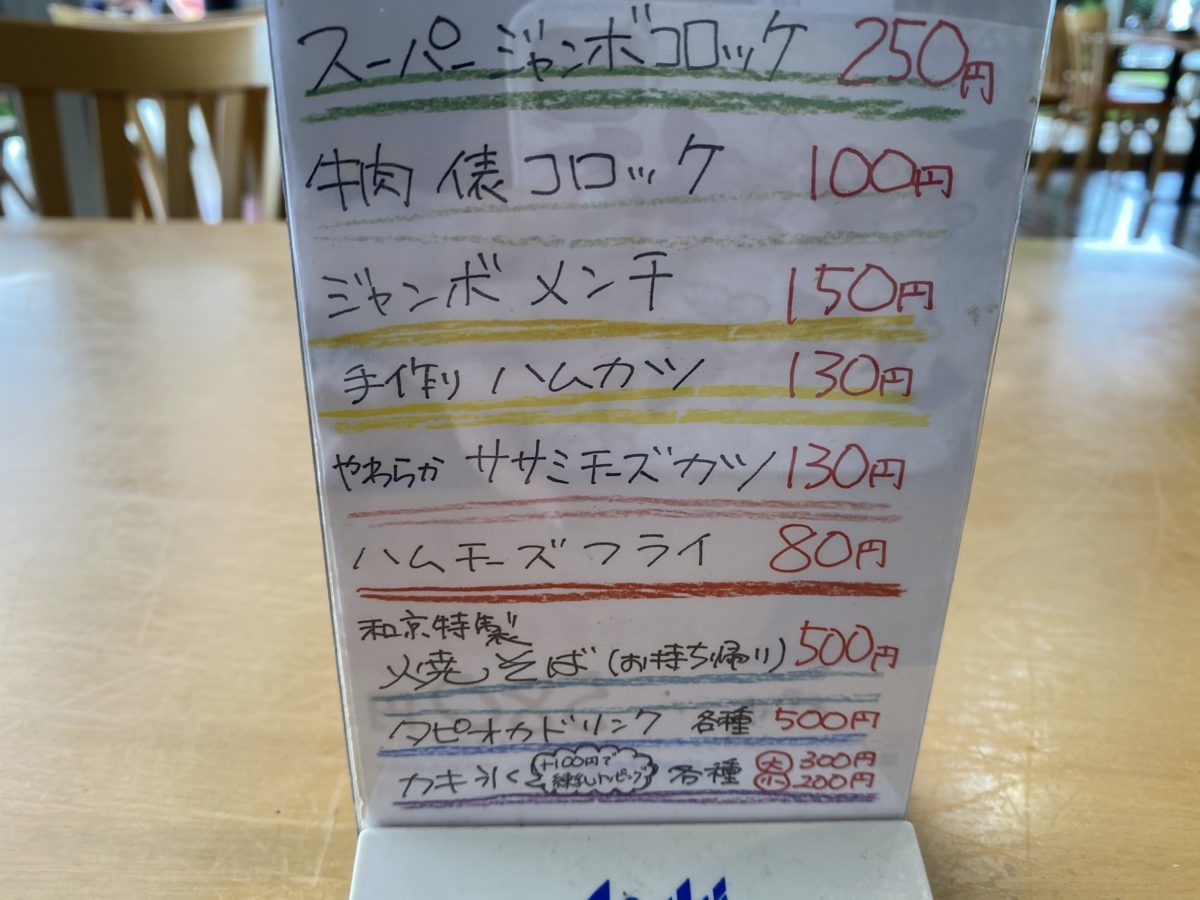 スーパージャンボコロッケ 250円
牛肉 俵コロッケ 100円
ジャンボ メンチ 150円
手作り ハムカツ 130円
やわらか ササミチーズカツ 130円
ハムチーズフライ 80円
和京特製
焼そば (お持ち帰り) 500円
タピオカドリンク 各種 500円
カキ氷 +100円で 練乳トッピング 各種 大 300円
小 200円